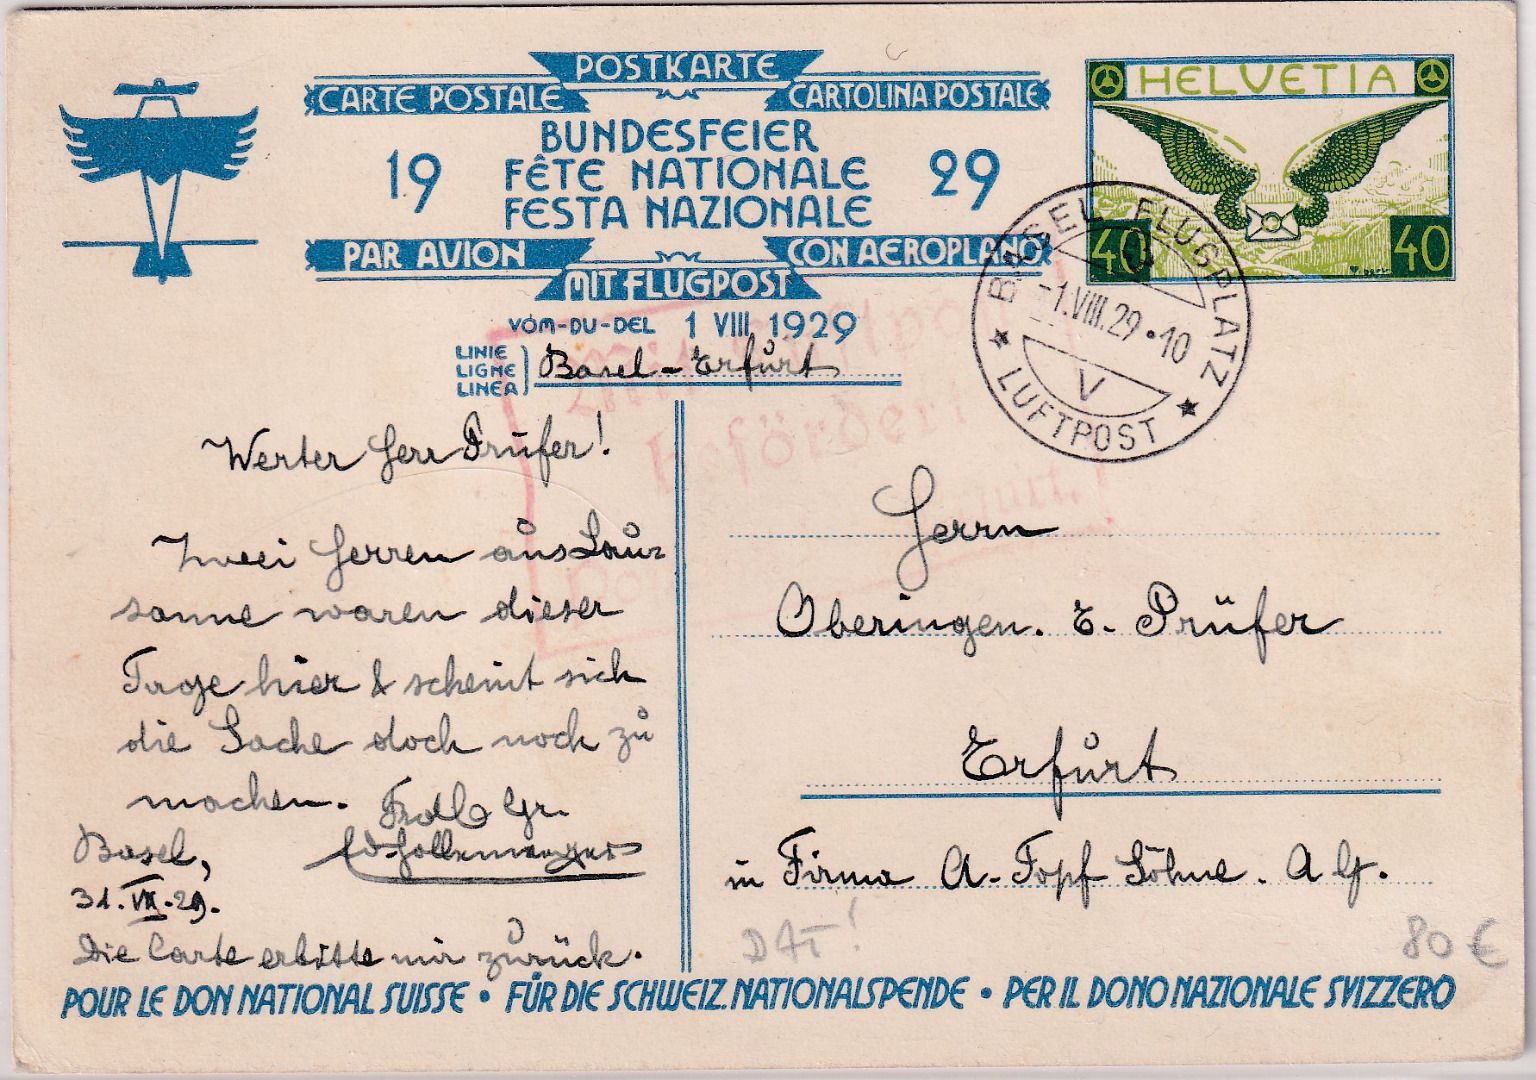 POSTKARTE
CARTE POSTALE CARTOLINA POSTALE
BUNDESFEIER
19 FÊTE NATIONALE 29
FESTA NAZIONALE
PAR AVION CON AEROPLANO
MIT FLUGPOST
VOM-DU-DEL 1 VIII 1929
LINIE
LIGNE
LINEA
Basel - Erfurt
HELVETIA
40 40
BASEL FLUGPLATZ
-1.VIII.29•10
V
LUFTPOST
Mit Luftpost
befördert
Werter Herr Prüfer!
Zwei Herren aus Lau=
sanne waren dieser
Tage hier & scheint sich
die Sache doch noch zu
machen. Frdl Gr.
Basel,
31.VII.29.
Die Carte erbitte mir zurück.
Herrn
Oberingen. E. Prüfer
Erfurt
in Firma A. Topf Söhne. A G.
DAT!
80 €
POUR LE DON NATIONAL SUISSE • FÜR DIE SCHWEIZ. NATIONALSPENDE • PER IL DONO NAZIONALE SVIZZERO